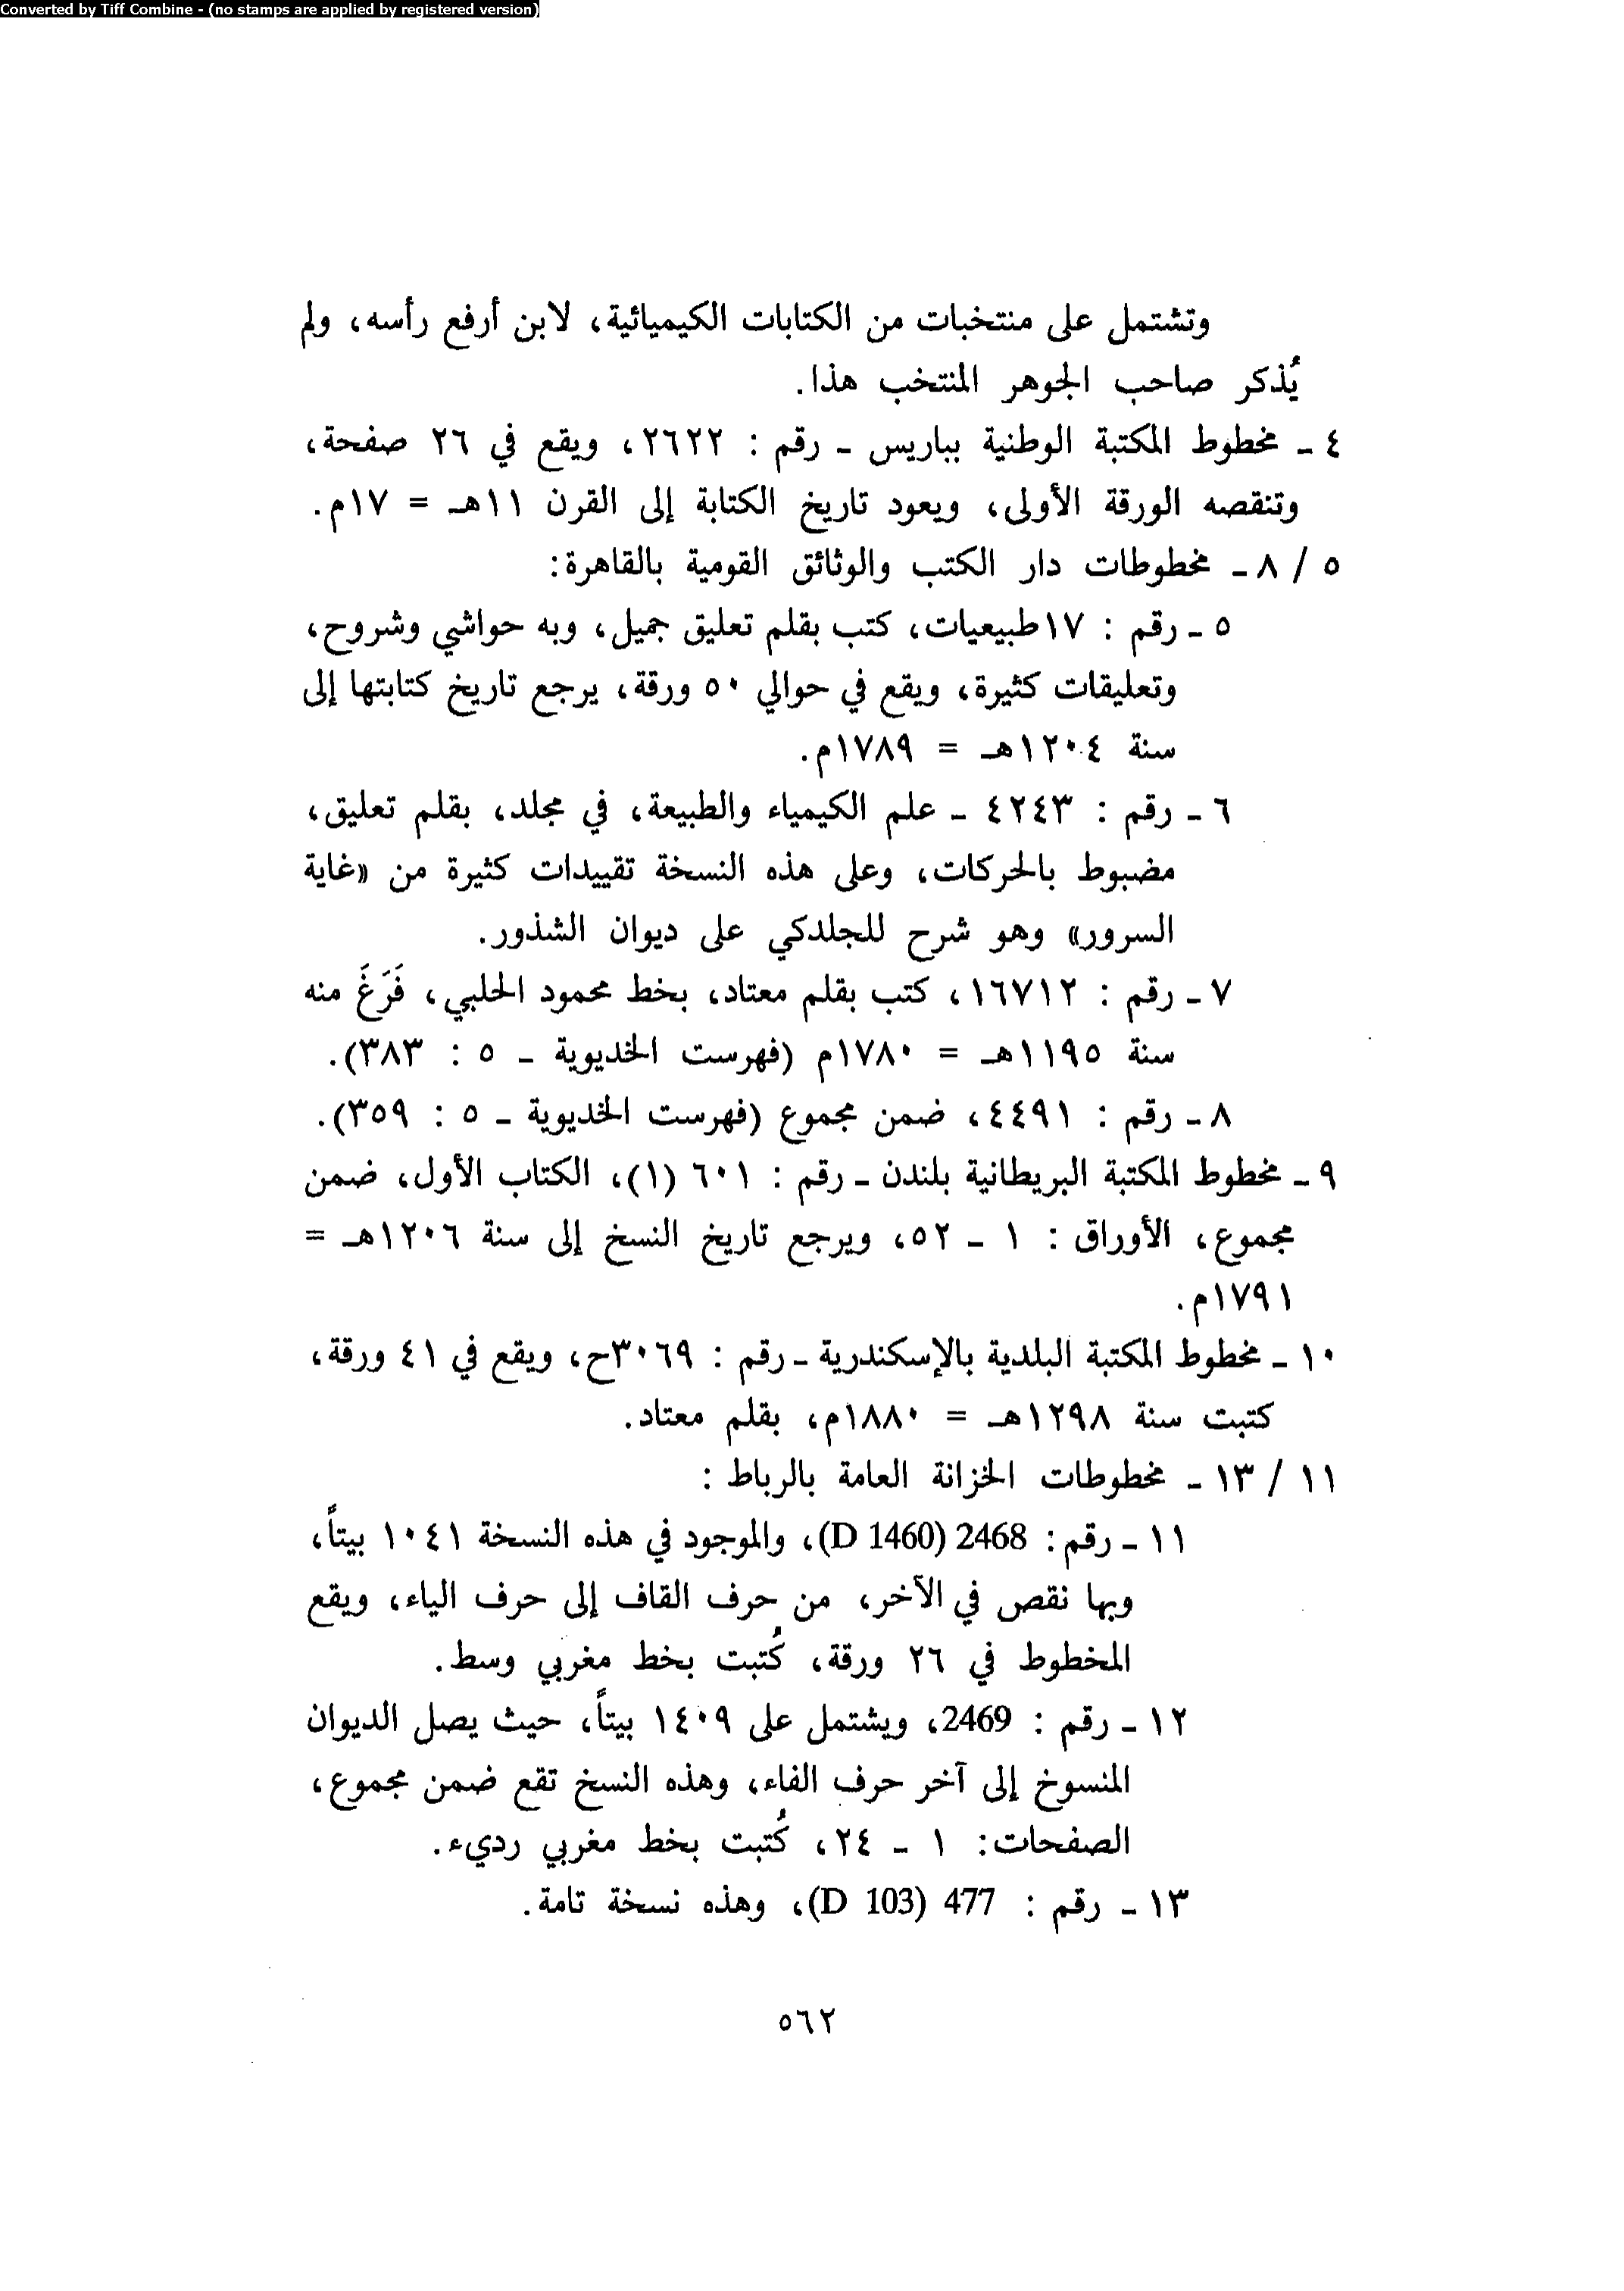 Converted by Tiff Combine - (no stamps are applied by registered version)
وتشتمل على منتخبات من الكتابات الكيميائية، لابن أرفع رأسه، ولم
يُذكر صاحب الجوهر المنتخب هذا.
٤ ـ مخطوط المكتبة الوطنية بباريس ـ رقم : ٢٦٢٢، ويقع في ٢٦ صفحة،
وتنقصه الورقة الأولى، ويعود تاريخ الكتابة إلى القرن ١١هـ = ١٧م.
٥ / ٨ ـ مخطوطات دار الكتب والوثائق القومية بالقاهرة:
٥ ـ رقم : ١٧طبيعيات، كتب بقلم تعليق جميل، وبه حواشي وشروح،
وتعليقات كثيرة، ويقع في حوالي ٥٠ ورقة، يرجع تاريخ كتابتها إلى
سنة ١٢٠٤هـ = ١٧٨٩م.
٦ ـ رقم : ٤٢٤٣ ـ علم الكيمياء والطبيعة، في مجلد، بقلم تعليق،
مضبوط بالحركات، وعلى هذه النسخة تقييدات كثيرة من «غاية
السرور» وهو شرح للجلدكي على ديوان الشذور.
٧ ـ رقم : ١٦٧١٢، كتب بقلم معتاد، بخط محمود الحلبي، فَرَغَ منه
سنة ١١٩٥هـ = ١٧٨٠م (فهرست الخديوية ـ ٥ : ٣٨٣).
٨ ـ رقم : ٤٤٩١، ضمن مجموع (فهرست الخديوية ـ ٥ : ٣٥٩).
٩ ـ مخطوط المكتبة البريطانية بلندن ـ رقم : ٦٠١ (١)، الكتاب الأول، ضمن
مجموع، الأوراق : ١ ـ ٥٢، ويرجع تاريخ النسخ إلى سنة ١٢٠٦هـ =
١٧٩١م.
١٠ ـ مخطوط المكتبة البلدية بالإسكندرية ـ رقم : ٣٠٦٩ح، ويقع في ٤١ ورقة،
كتبت سنة ١٢٩٨هـ = ١٨٨٠م، بقلم معتاد.
١١ / ١٣ ـ مخطوطات الخزانة العامة بالرباط :
١١ ـ رقم : 2468 (D 1460)، والموجود في هذه النسخة ١٠٤١ بيتاً،
وبها نقص في الآخر، من حرف القاف إلى حرف الياء، ويقع
المخطوط في ٢٦ ورقة، كُتبت بخط مغربي وسط.
١٢ ـ رقم : 2469، ويشتمل على ١٤٠٩ بيتاً، حيث يصل الديوان
المنسوخ إلى آخر حرف الفاء، وهذه النسخ تقع ضمن مجموع،
الصفحات: ١ ـ ٢٤، كُتبت بخط مغربي رديء.
١٣ ـ رقم : 477 (D 103)، وهذه نسخة تامة.
٥٦٢